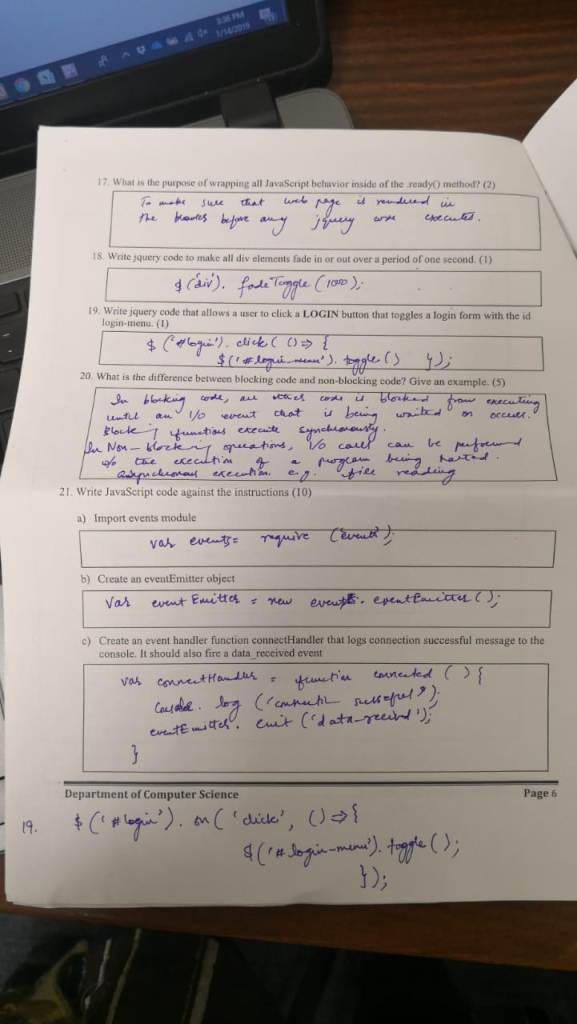 3:36 PM
1/14/2019
17. What is the purpose of wrapping all JavaScript behavior inside of the .ready() method? (2)
To make sure that web page is rendered in
the before any jquery executed.
18. Write jquery code to make all div elements fade in or out over a period of one second. (1)
$('div'). fadeToggle (1000);
19. Write jquery code that allows a user to click a LOGIN button that toggles a login form with the id
login-menu. (1)
$ ('#login'). click( () => {
$('#login-menu'). toggle() });
20. What is the difference between blocking code and non-blocking code? Give an example. (5)
In blocking code, all other code is blocked from executing
until an I/O event that is being waited on occurs.
Blocking functions execute synchronously.
In Non-blocking operations, I/O calls can be performed
w/o the execution of a program being halted.
Asynchronous execution e.g. file reading
21. Write JavaScript code against the instructions (10)
a) Import events module
var events= require ('events');
b) Create an eventEmitter object
var eventEmitter = new events. eventEmitter ();
c) Create an event handler function connectHandler that logs connection successful message to the
console. It should also fire a data_received event
var connectHandler = function connected () {
console. log ('connection );
eventEmitter. emit ('data-received');
}
Department of Computer Science
Page 6
19. $ ('#login'). on ( 'click', () => {
$('#login-menu'). toggle ();
});